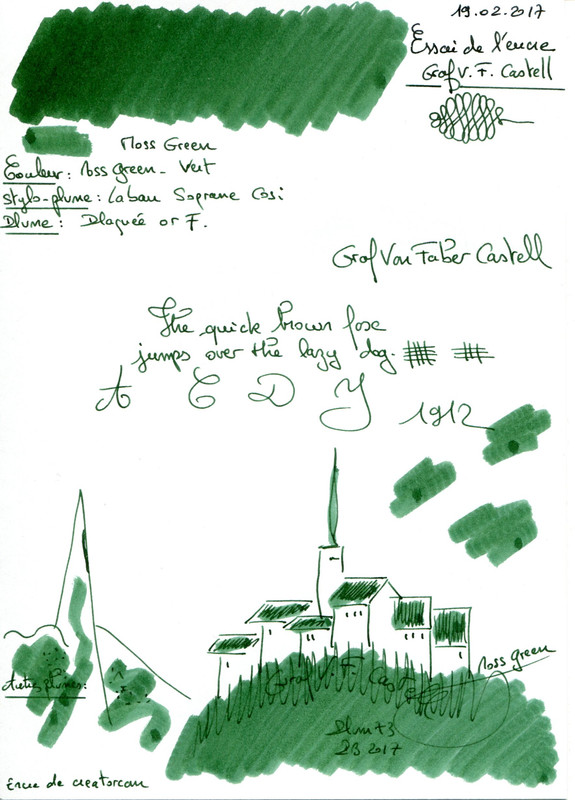 19.02.2017
Essai de l'encre
Graf V. F. Castell
Moss Green
Couleur : Moss green - Vert
Stylo-plume : Laban Soprane Cosi
Plume : Plaquée or F.
Graf Von Faber Castell
The quick brown foxe
jumps over the lazy dog.
A C D J
1912
Moss green
Graf V. F. Castell
Autres plumes :
2017
Encre de